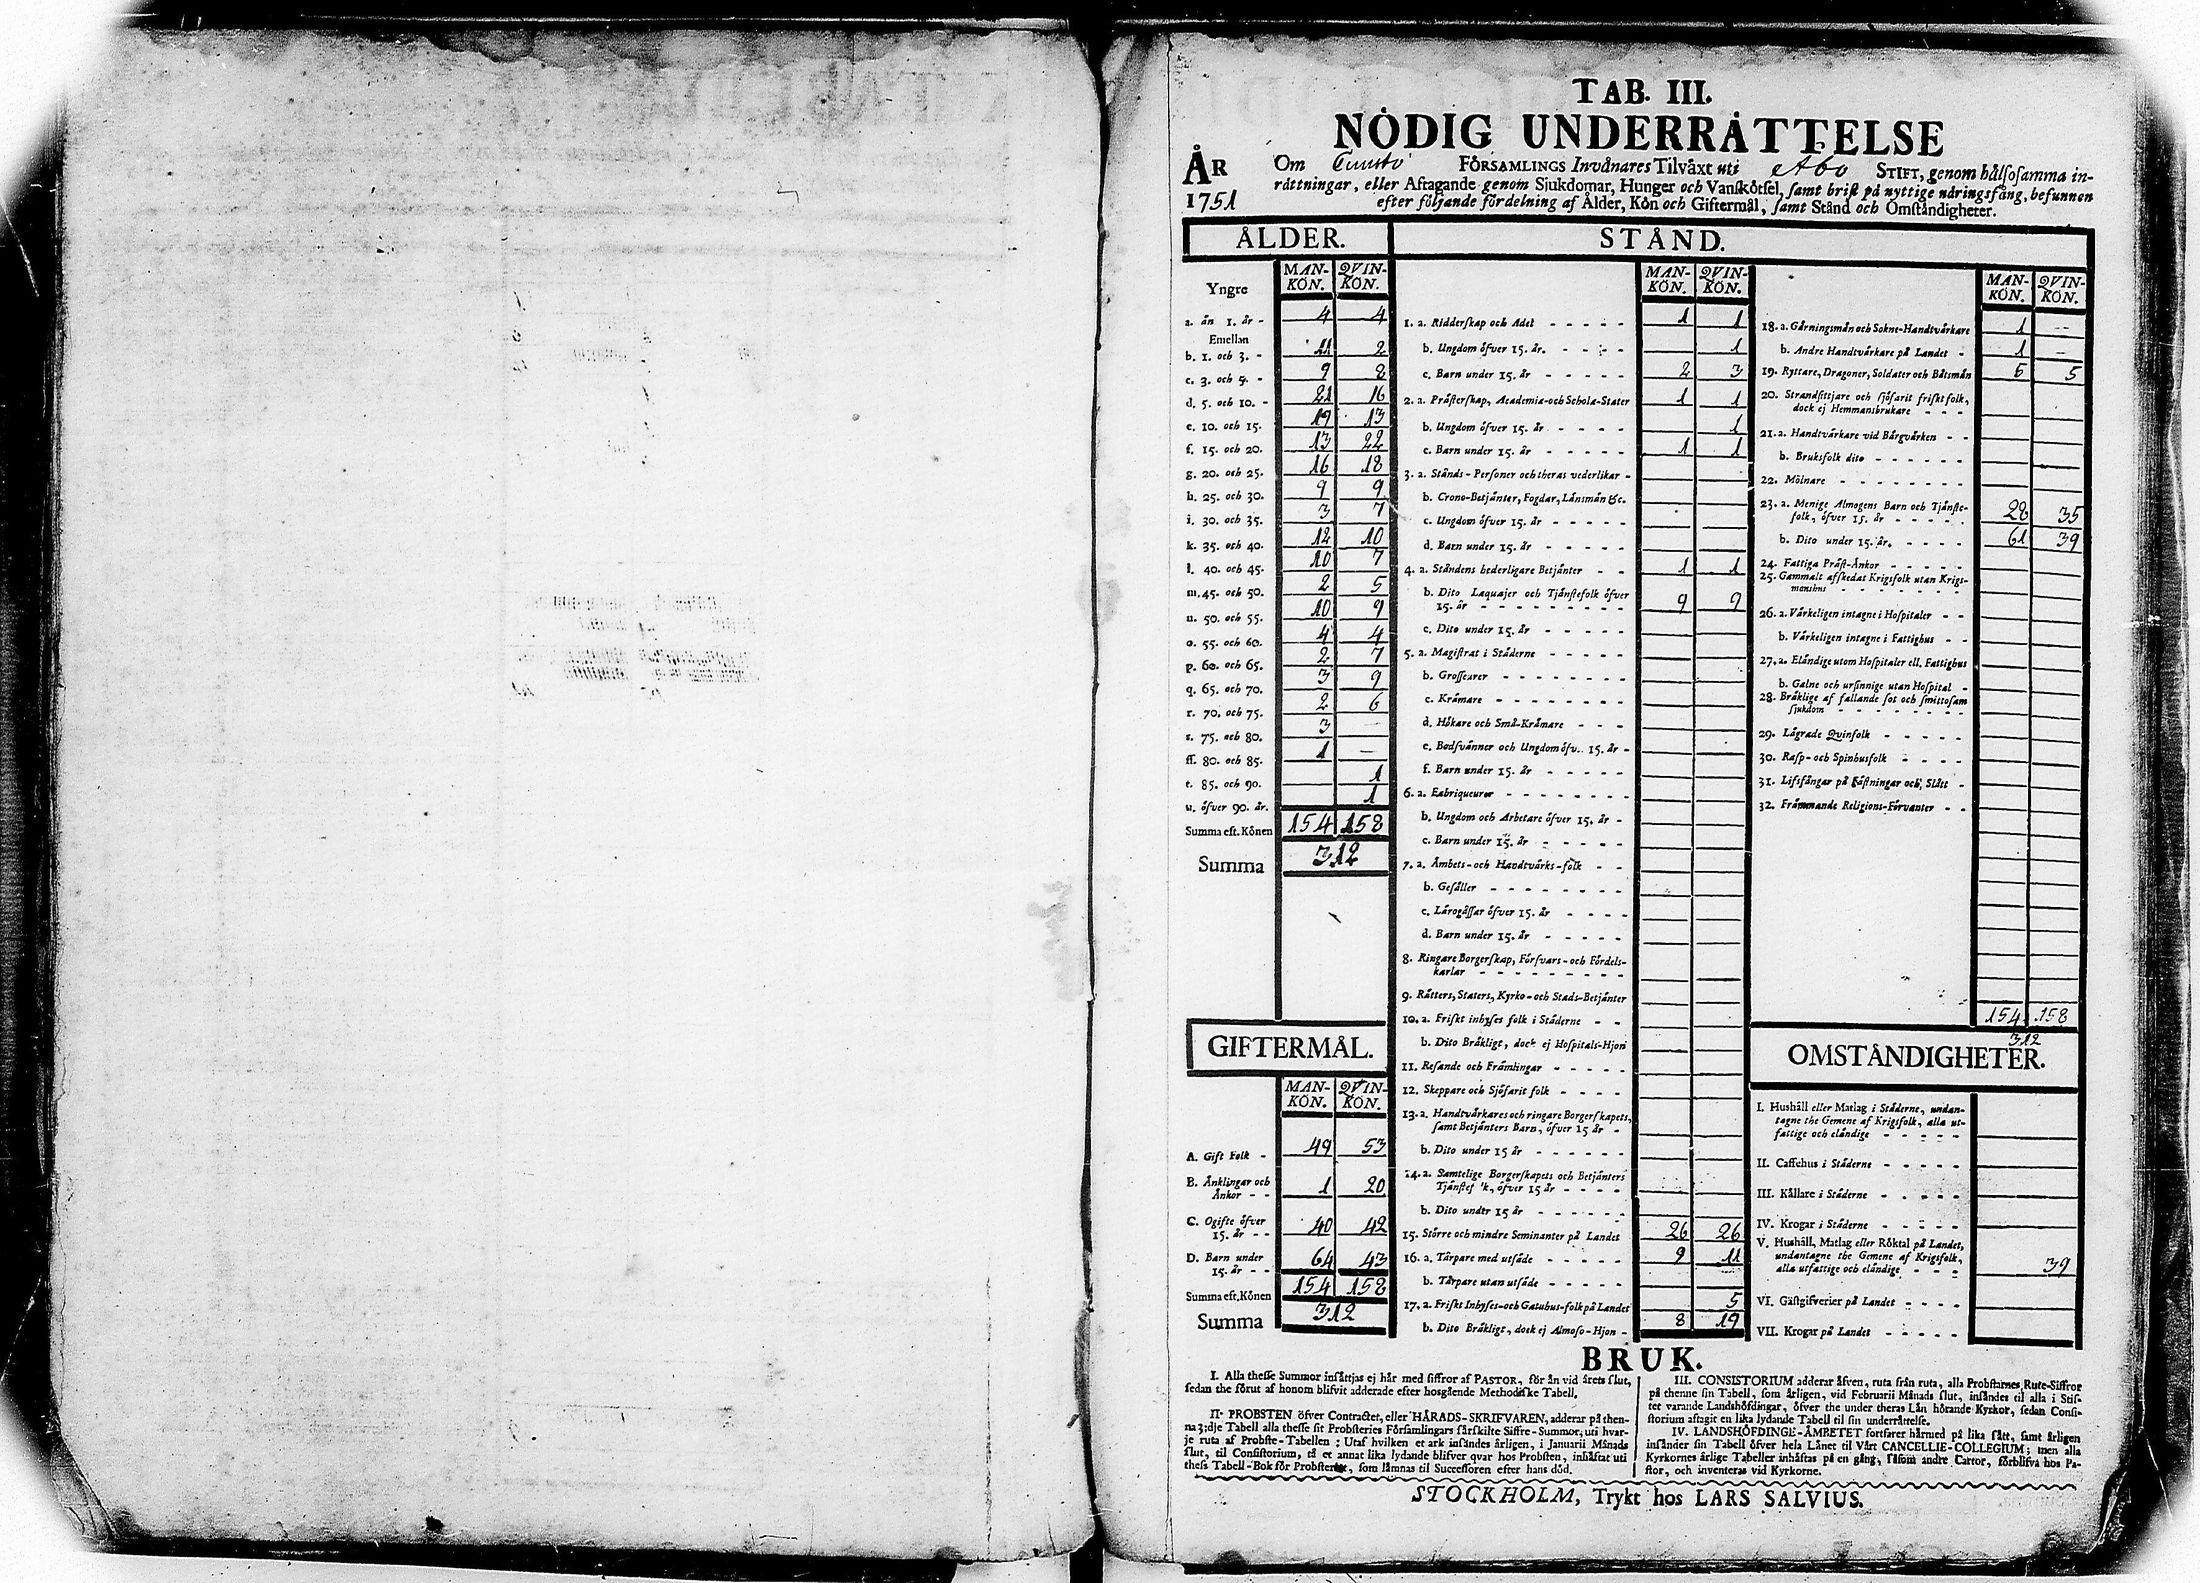 TAB. III.
NÖDIG UNDERRÅTTELSE
ÅR 1751
Om Cumlö FÖRSAMLINGS Invånares Tilvåxt uti Åbo STIFT, genom hålsosamma in-
råttningar, eller Aftagande genom Sjukdomar, Hunger och Vanskötsel, samt brist på nyttige nåringsfång, befunnen
efter följande fördelning af Ålder, Kön och Giftermål, samt Stånd och Omståndigheter.
ÅLDER.
Yngre MAN-KÖN. QVIN-KÖN.
a. ån 1. år - 4 4
Emellan
b. 1. och 3. - 11 2
c. 3. och 5. - 9 8
d. 5. och 10. - 21 16
e. 10. och 15. 19 13
f. 15. och 20. 13 22
g. 20. och 25. 16 18
h. 25. och 30. 9 9
i. 30. och 35. 3 7
k. 35. och 40. 12 10
l. 40. och 45. 10 7
m. 45. och 50. 2 5
n. 50. och 55. 10 9
o. 55. och 60. 4 4
p. 60. och 65. 2 7
q. 65. och 70. 3 9
r. 70. och 75. 2 6
s. 75. och 80. 3 —
ff. 80. och 85. 1 —
t. 85. och 90. 1
u. öfver 90. år. 1
Summa eft. Könen 154 158
Summa 312
GIFTERMÅL.
MAN-KÖN. QVIN-KÖN.
A. Gift Folk - 49 53
B. Ånklingar och
Ånkor - - 1 20
C. Ogifte öfver
15. år - - 40 42
D. Barn under
15. år - - 64 43
Summa eft. Könen 154 158
Summa 312
STÅND.
MAN-KÖN. QVIN-KÖN.
1. a. Ridderskap och Adel - - - - - 1 1
b. Ungdom öfver 15. år. - - - - 1
c. Barn under 15. år - - - - - 2 3
2. a. Pråsterskap, Academiæ-och Scholæ-Stater 1 1
b. Ungdom öfver 15. år - - - - 1
c. Barn under 15. år - - - - - 1 1
3. a. Stånds-Personer och theras vederlikar -
b. Crono-Betjånter, Fogdar, Lånsmån &c.
c. Ungdom öfver 15. år - - - - -
d. Barn under 15. år - - - - -
4. a. Ståndens hederligare Betjånter - - 1 1
b. Dito Laquajer och Tjånstefolk öfver
15. år - - - - - - - - - 9 9
c. Dito under 15. år - - - - -
5. a. Magistrat i Ståderne - - - - -
b. Grosserer - - - - - - - -
c. Kråmare - - - - - - - -
d. Hökare och Små-Kråmare - - -
e. Bodsvånner och Ungdom öfv. 15. år -
f. Barn under 15. år - - - - -
6. a. Fabriqueurer - - - - - - - -
b. Ungdom och Arbetare öfver 15. år -
c. Barn under 15. år - - - - -
7. a. Åmbets-och Handtvårks-folk - -
b. Gesåller - - - - - - - -
c. Lårogåssar öfver 15. år - - - -
d. Barn under 15. år - - - - -
8. Ringare Borgerskap, Försvars-och Fördels-
karlar - - - - - - - - -
9. Råtters, Staters, Kyrko-och Stads-Betjånter
10. a. Friskt inhyses folk i Ståderne - -
b. Dito Bråkligt, dock ej Hospitals-Hjon
11. Resande och Fråmlingar - - - - -
12. Skeppare och Sjöfarit folk - - - -
13. a. Handtvårkares och ringare Borgerskapets,
samt Betjånters Barn, öfver 15 år -
b. Dito under 15 år - - - - - -
14. a. Samtelige Borgerskapets och Betjånters
Tjånstef'k, öfver 15 år - - - -
b. Dito under 15 år - - - - - -
15. Större och mindre Seminanter på Landet 26 26
16. a. Tårpare med utsåde - - - - - 9 11
b. Tårpare utan utsåde - - - - -
17. a. Friskt Inhyses-och Gatuhus-folk på Landet 5
b. Dito Bråkligt, dock ej Almoso-Hjon - 8 19
MAN-KÖN. QVIN-KÖN.
18. a. Gårningsmån och Sokne-Handtvårkare 1 —
b. Andre Handtvårkare på Landet - 1 —
19. Ryttare, Dragoner, Soldater och Båtsmån 5 5
20. Strandsittjare och sjöfarit friskt folk,
dock ej Hemmansbrukare - - -
21. a. Handtvårkare vid Bårgvårken - -
b. Bruksfolk dito - - - - - -
22. Mölnare - - - - - - - -
23. a. Menige Almogens Barn och Tjånste-
folk, öfver 15. år - - - - - 28 35
b. Dito under 15. år. - - - - 61 39
24. Fattiga Pråst-Ånkor - - - - -
25. Gammalt afskedat Krigsfolk utan Krigs-
manshus - - - - - - - -
26. a. Vårkeligen intagne i Hospitaler - -
b. Vårkeligen intagne i Fattighus - -
27. a. Elåndige utom Hospitaler ell. Fattighus
b. Galne och ursinnige utan Hospital -
28. Bråklige af fallande sot och smittosam
sjukdom - - - - - - - -
29. Lågrade Qvinfolk - - - - -
30. Rasp-och Spinhusfolk - - - -
31. Lifsfångar på Fåstningar och Slått -
32. Fråmmande Religions-Förvanter - -
154 158
312
OMSTÅNDIGHETER.
I. Hushåll eller Matlag i Ståderne, undan-
tagne the Gemene af Krigsfolk, alla ut-
fattige och elåndige - - - - -
II. Caffehus i Ståderne - - - - -
III. Kållare i Ståderne - - - - -
IV. Krogar i Ståderne - - - - -
V. Hushåll, Matlag eller Röktal på Landet,
undantagne the Gemene af Krigsfolk,
alla utfattige och elåndige - - - 39
VI. Gåstgifverier på Landet - - - -
VII. Krogar på Landet - - - - -
BRUK.
I. Alla thesse Summor insåttjas ej hår med siffror af PASTOR, för ån vid årets slut,
sedan the förut af honom blifvit adderade efter hosgående Methodiske Tabell.
II. PROBSTEN öfver Contractet, eller HÅRADS-SKRIFVAREN, adderar på then-
na 3:dje Tabell alla thesse sit Probsteries Församlingars sårskilte Siffre-Summor, uti hvar-
je ruta af Probste-Tabellen; Utaf hvilken et ark insåndes årligen, i Januarii Månads
slut, til Consistorium, tå et annat lika lydande blifver qvar hos Probsten, inhåftat uti
thess Tabell-Bok för Probsteriet, som låmnas til Successoren efter hans död.
III. CONSISTORIUM adderar åfven, ruta från ruta, alla Probstarnes Rute-Siffror
på thenne sin Tabell, som årligen, vid Februarii Månads slut, insåndes til alla i Stif-
tet varande Landshöfdingar, öfver the under theras Lån hörande Kyrkor, sedan Consi-
storium aftagit en lika lydande Tabell til sin underråttelse.
IV. LANDSHÖFDINGE-ÅMBETET fortfarer hårmed på lika sått, samt årligen
insånder sin Tabell öfver hela Lånet til Vårt CANCELLIE-COLLEGIUM; men alla
Kyrkornes årlige Tabeller inhåftas på en gång, såsom andre Cartor, förblifva hos Pa-
stor, och inventeras vid Kyrkorne.
STOCKHOLM, Trykt hos LARS SALVIUS.